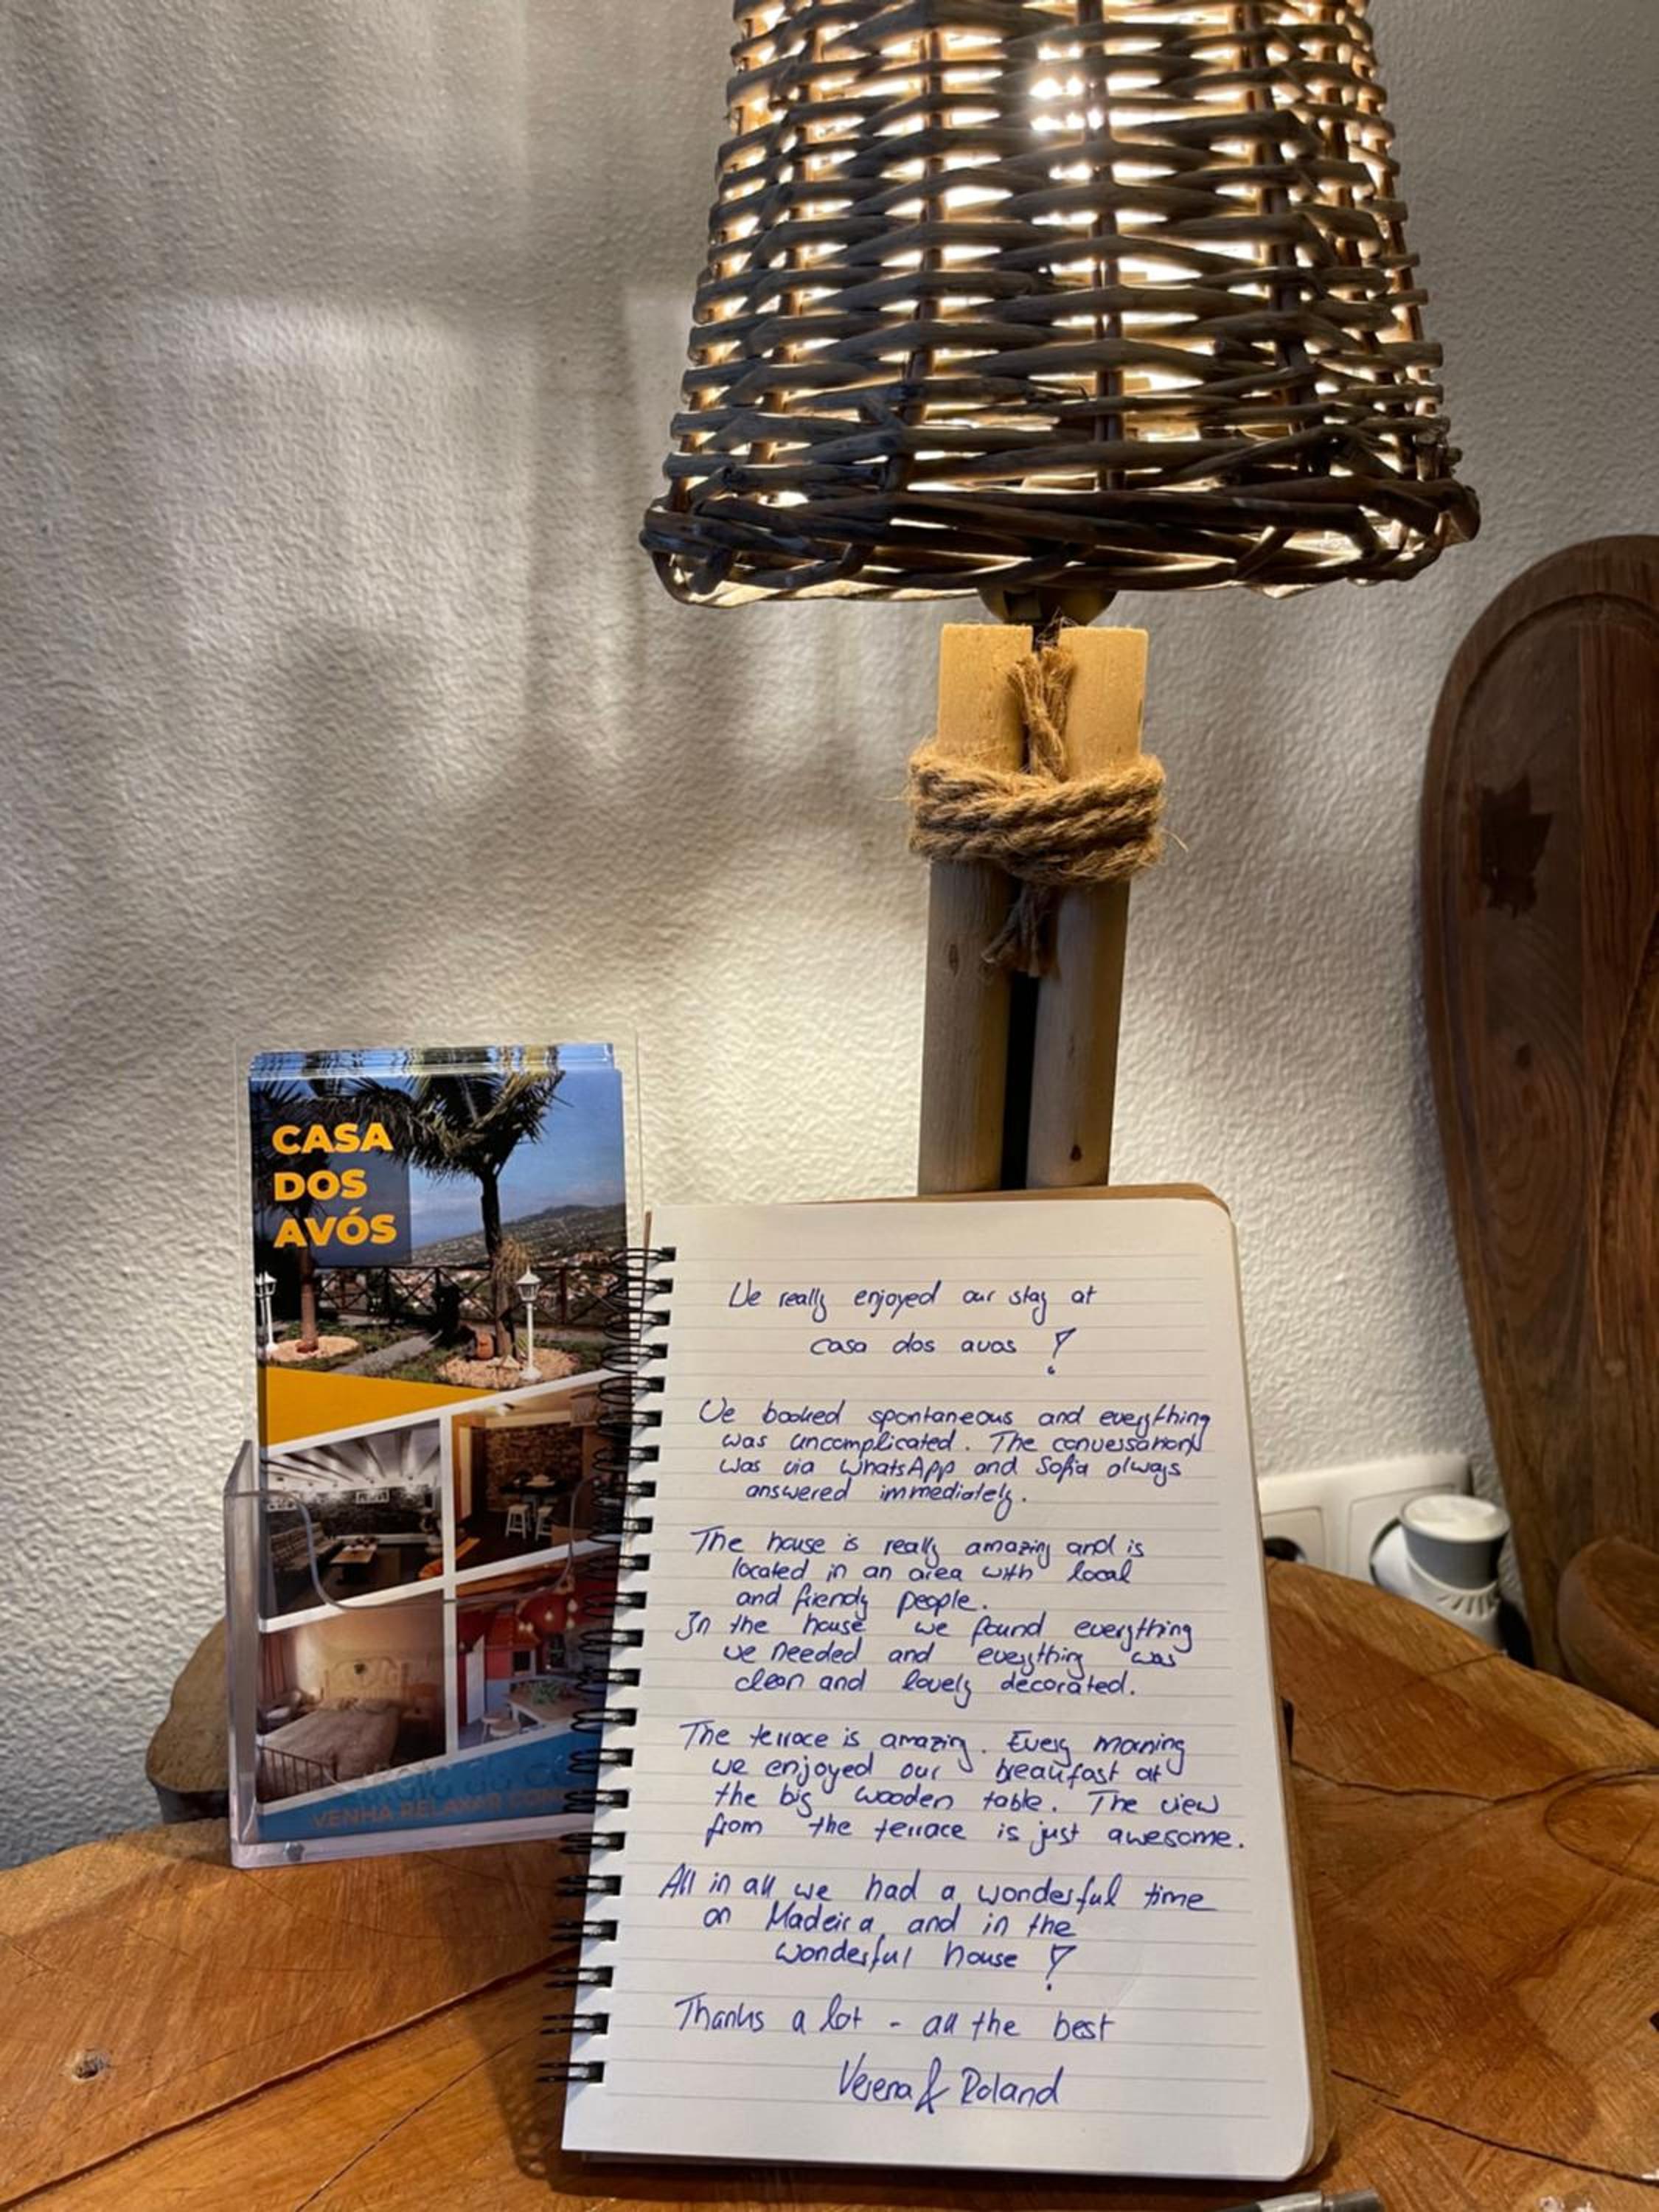 CASA
DOS
AVÓS
VENHA RELAXAR
We really enjoyed our stay at
casa dos avos !
We booked spontaneous and everything
was uncomplicated. The conversation
was via WhatsApp and Sofia always
answered immediately.
The house is really amazing and is
located in an area with local
and friendy people.
In the house we found everything
we needed and everything was
clean and lovely decorated.
The terrace is amazing. Every morning
we enjoyed our breakfast at
the big wooden table. The view
from the terrace is just awesome.
All in all we had a wonderful time
on Madeira and in the
wonderful house !
Thanks a lot - all the best
Verena & Roland